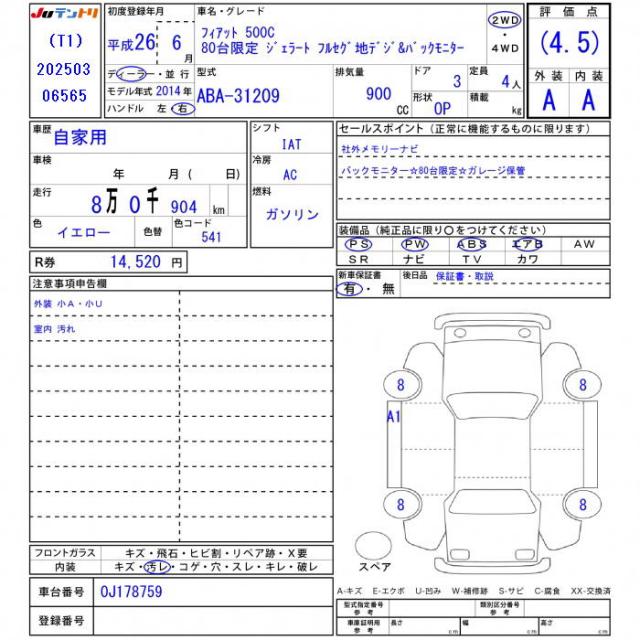 JUテントリ
(T1)
202503
06565
初度登録年月
平成26年 6月
ディーラー・並行
モデル年式 2014年
ハンドル 左・右
車名・グレード
フィアット 500C
80台限定 ジェラート フルセグ地デジ&バックモニター
2WD
・
4WD
型式
ABA-31209
排気量
900
CC
ドア
3
定員
4人
形状
OP
積載
kg
評価点
(4.5)
外装 内装
A A
車歴
自家用
車検
年 月 ( 日)
走行
8万 0千 904 km
色
イエロー
色替
色コード
541
シフト
IAT
冷房
AC
燃料
ガソリン
セールスポイント (正常に機能するものに限ります)
社外メモリーナビ
バックモニター☆80台限定☆ガレージ保管
装備品 (純正品に限り○をつけてください)
PS PW ABS エアB AW
SR ナビ TV カワ
R券 14,520 円
新車保証書
有・無
後日品 保証書・取説
注意事項申告欄
外装 小A・小U
室内 汚れ
8 8
A1
8 8
スペア
フロントガラス キズ・飛石・ヒビ割・リペア跡・X要
内装 キズ・汚レ・コゲ・穴・スレ・キレ・破レ
車台番号 0J178759
登録番号
A-キズ E-エクボ U-凹み W-補修跡 S-サビ C-腐食 XX-交換済
型式指定番号
参考
類別区分番号
参考
車庫証明用
参考
長さ cm 幅 cm 高さ cm